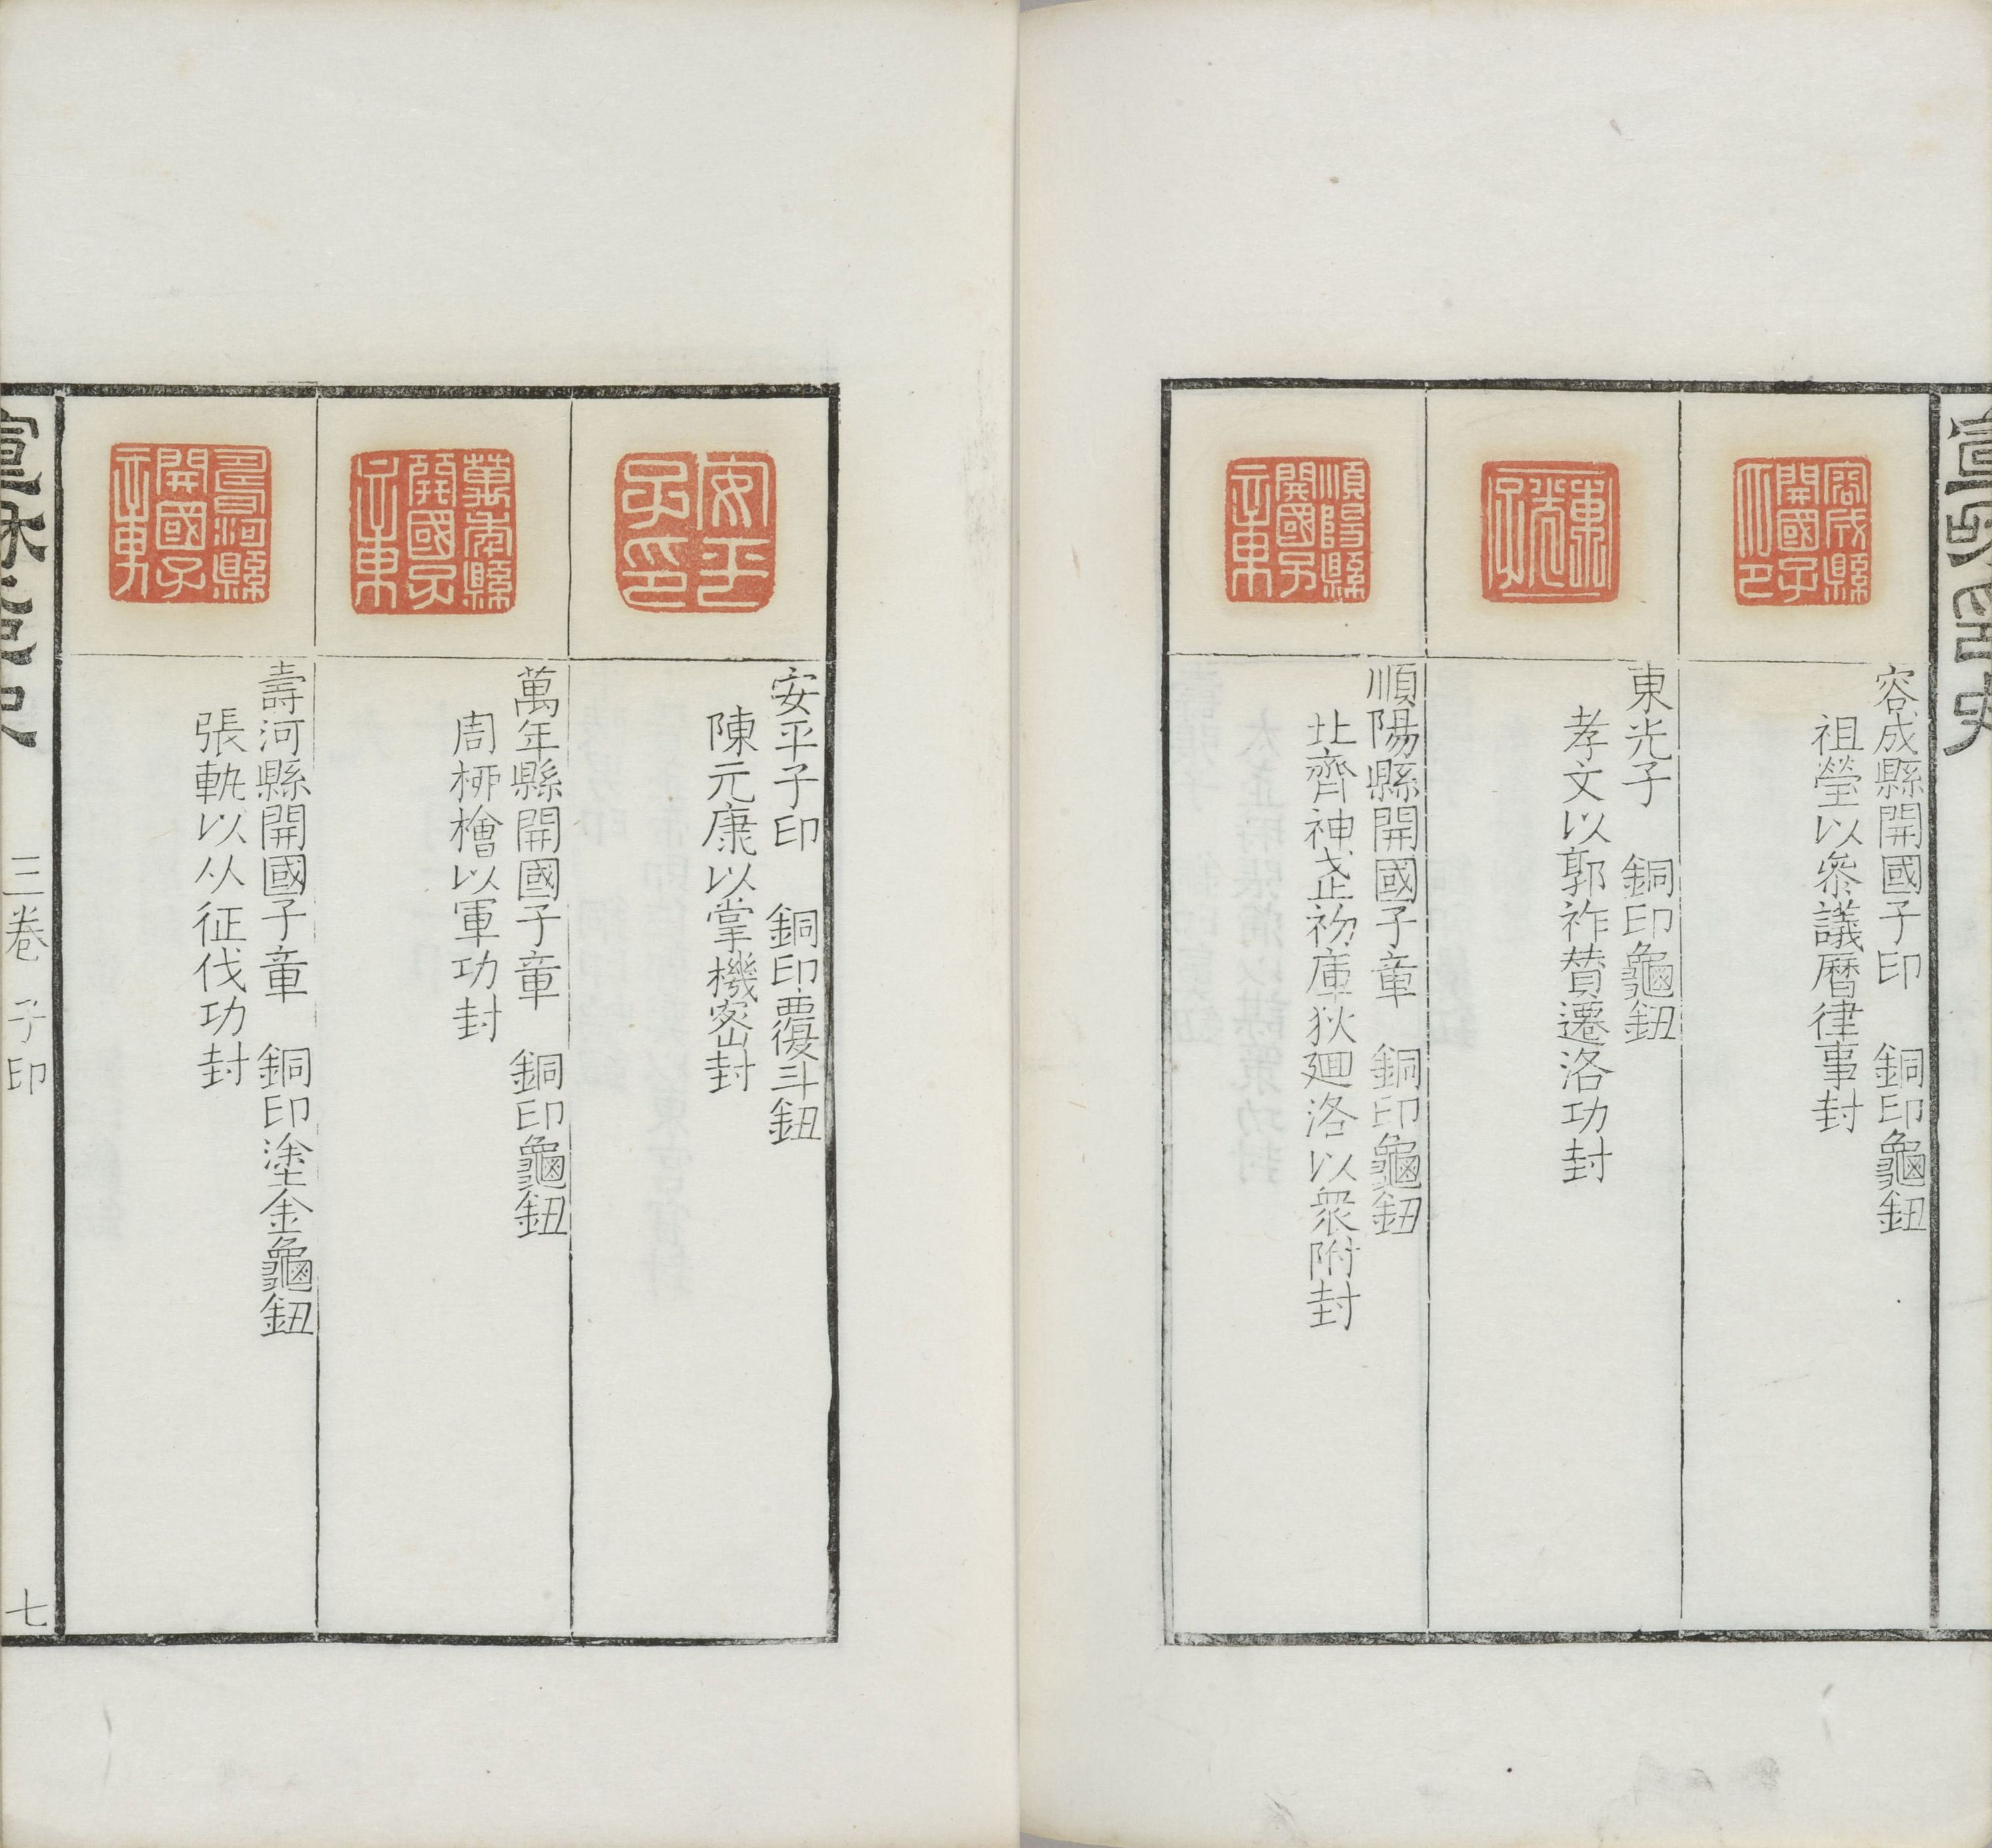 容成縣開國子印
容成縣開國子印　銅印龜鈕
祖瑩以叅議曆律事封
東光子
東光子　銅印龜鈕
孝文以郭祚賛遷洛功封
順陽縣開國子章
順陽縣開國子章　銅印龜鈕
北齊神武初庫狄廻洛以衆附封
安平子印
安平子印　銅印覆斗鈕
陳元康以掌機密封
萬年縣開國子章
萬年縣開國子章　銅印龜鈕
周栁檜以軍功封
壽河縣開國子章
壽河縣開國子章　銅印塗金龜鈕
張軌以从征伐功封
三卷　子印
七